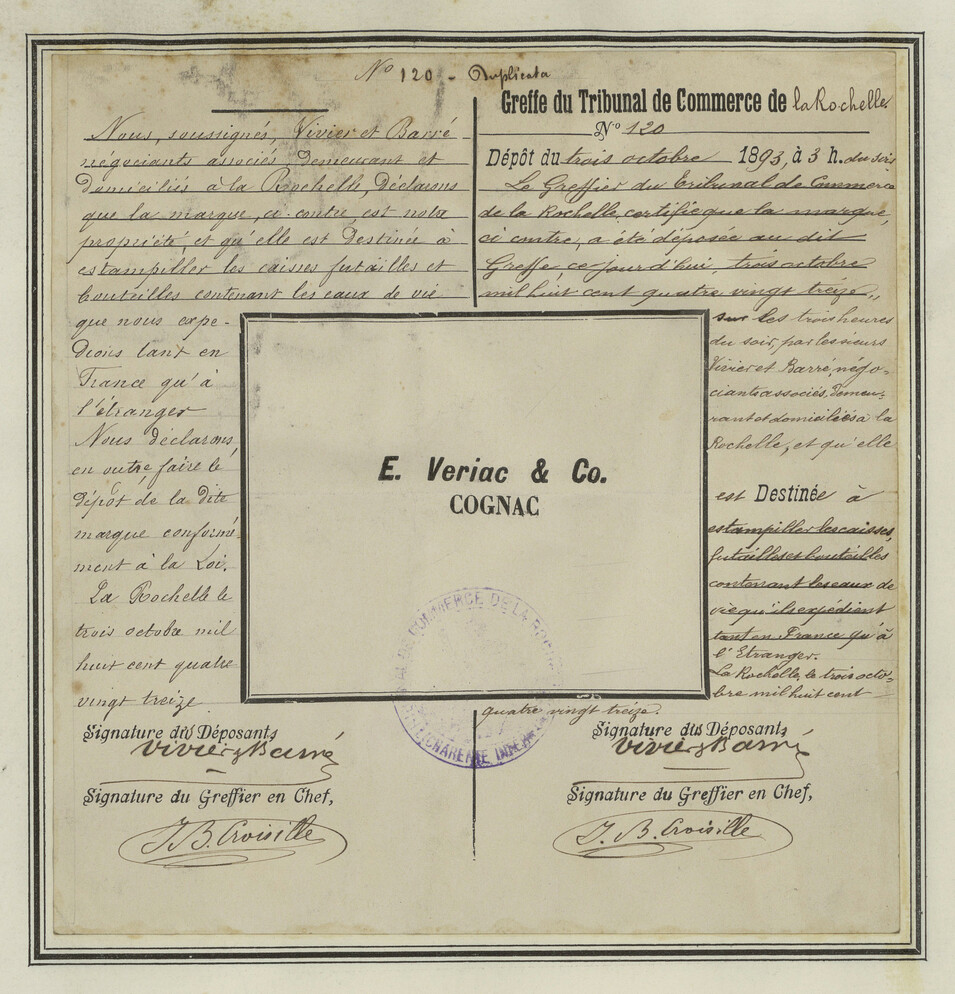 N° 120 - Duplicata
Nous, soussignés, Vivier et Barré
négociants associés, demeurant et
domiciliés à la Rochelle, déclarons
que la marque, ci-contre, est notre
propriété, et qu'elle est destinée à
estampiller les caisses futailles et
bouteilles contenant les eaux de vie
que nous expé-
dions tant en
France qu'à
l'étranger
Nous déclarons
en outre faire le
dépôt de la dite
marque conformé-
ment à la Loi.
La Rochelle le
trois octobre mil
huit cent quatre
vingt treize
Signature des Déposants
Vivier & Barré
Signature du Greffier en Chef,
J. B. Croisille
Greffe du Tribunal de Commerce de la Rochelle
N° 120
Dépôt du trois octobre 1893, à 3 h. du soir
Le Greffier du tribunal de Commerce
de la Rochelle, certifie que la marque,
ci contre, a été déposée au dit
Greffe, ce jourd'hui, trois octobre
mil huit cent quatre vingt treize,,
sur les trois heures
du soir, par les sieurs
Vivier et Barré, négo-
ciants associés, demeu-
rant et domiciliés à la
Rochelle, et qu'elle
est Destinée à
estampiller les caisses,
futailles et bouteilles
contenant les eaux de
vie qu'ils expédient
tant en France qu'à
l'Etranger.
La Rochelle, le trois octo-
bre mil huit cent
quatre vingt treize.
Signature des Déposants
Vivier & Barré
Signature du Greffier en Chef,
J. B. Croisille
E. Veriac & Co.
COGNAC
COMMERCE DE LA ROCH
CHARENTE INFER